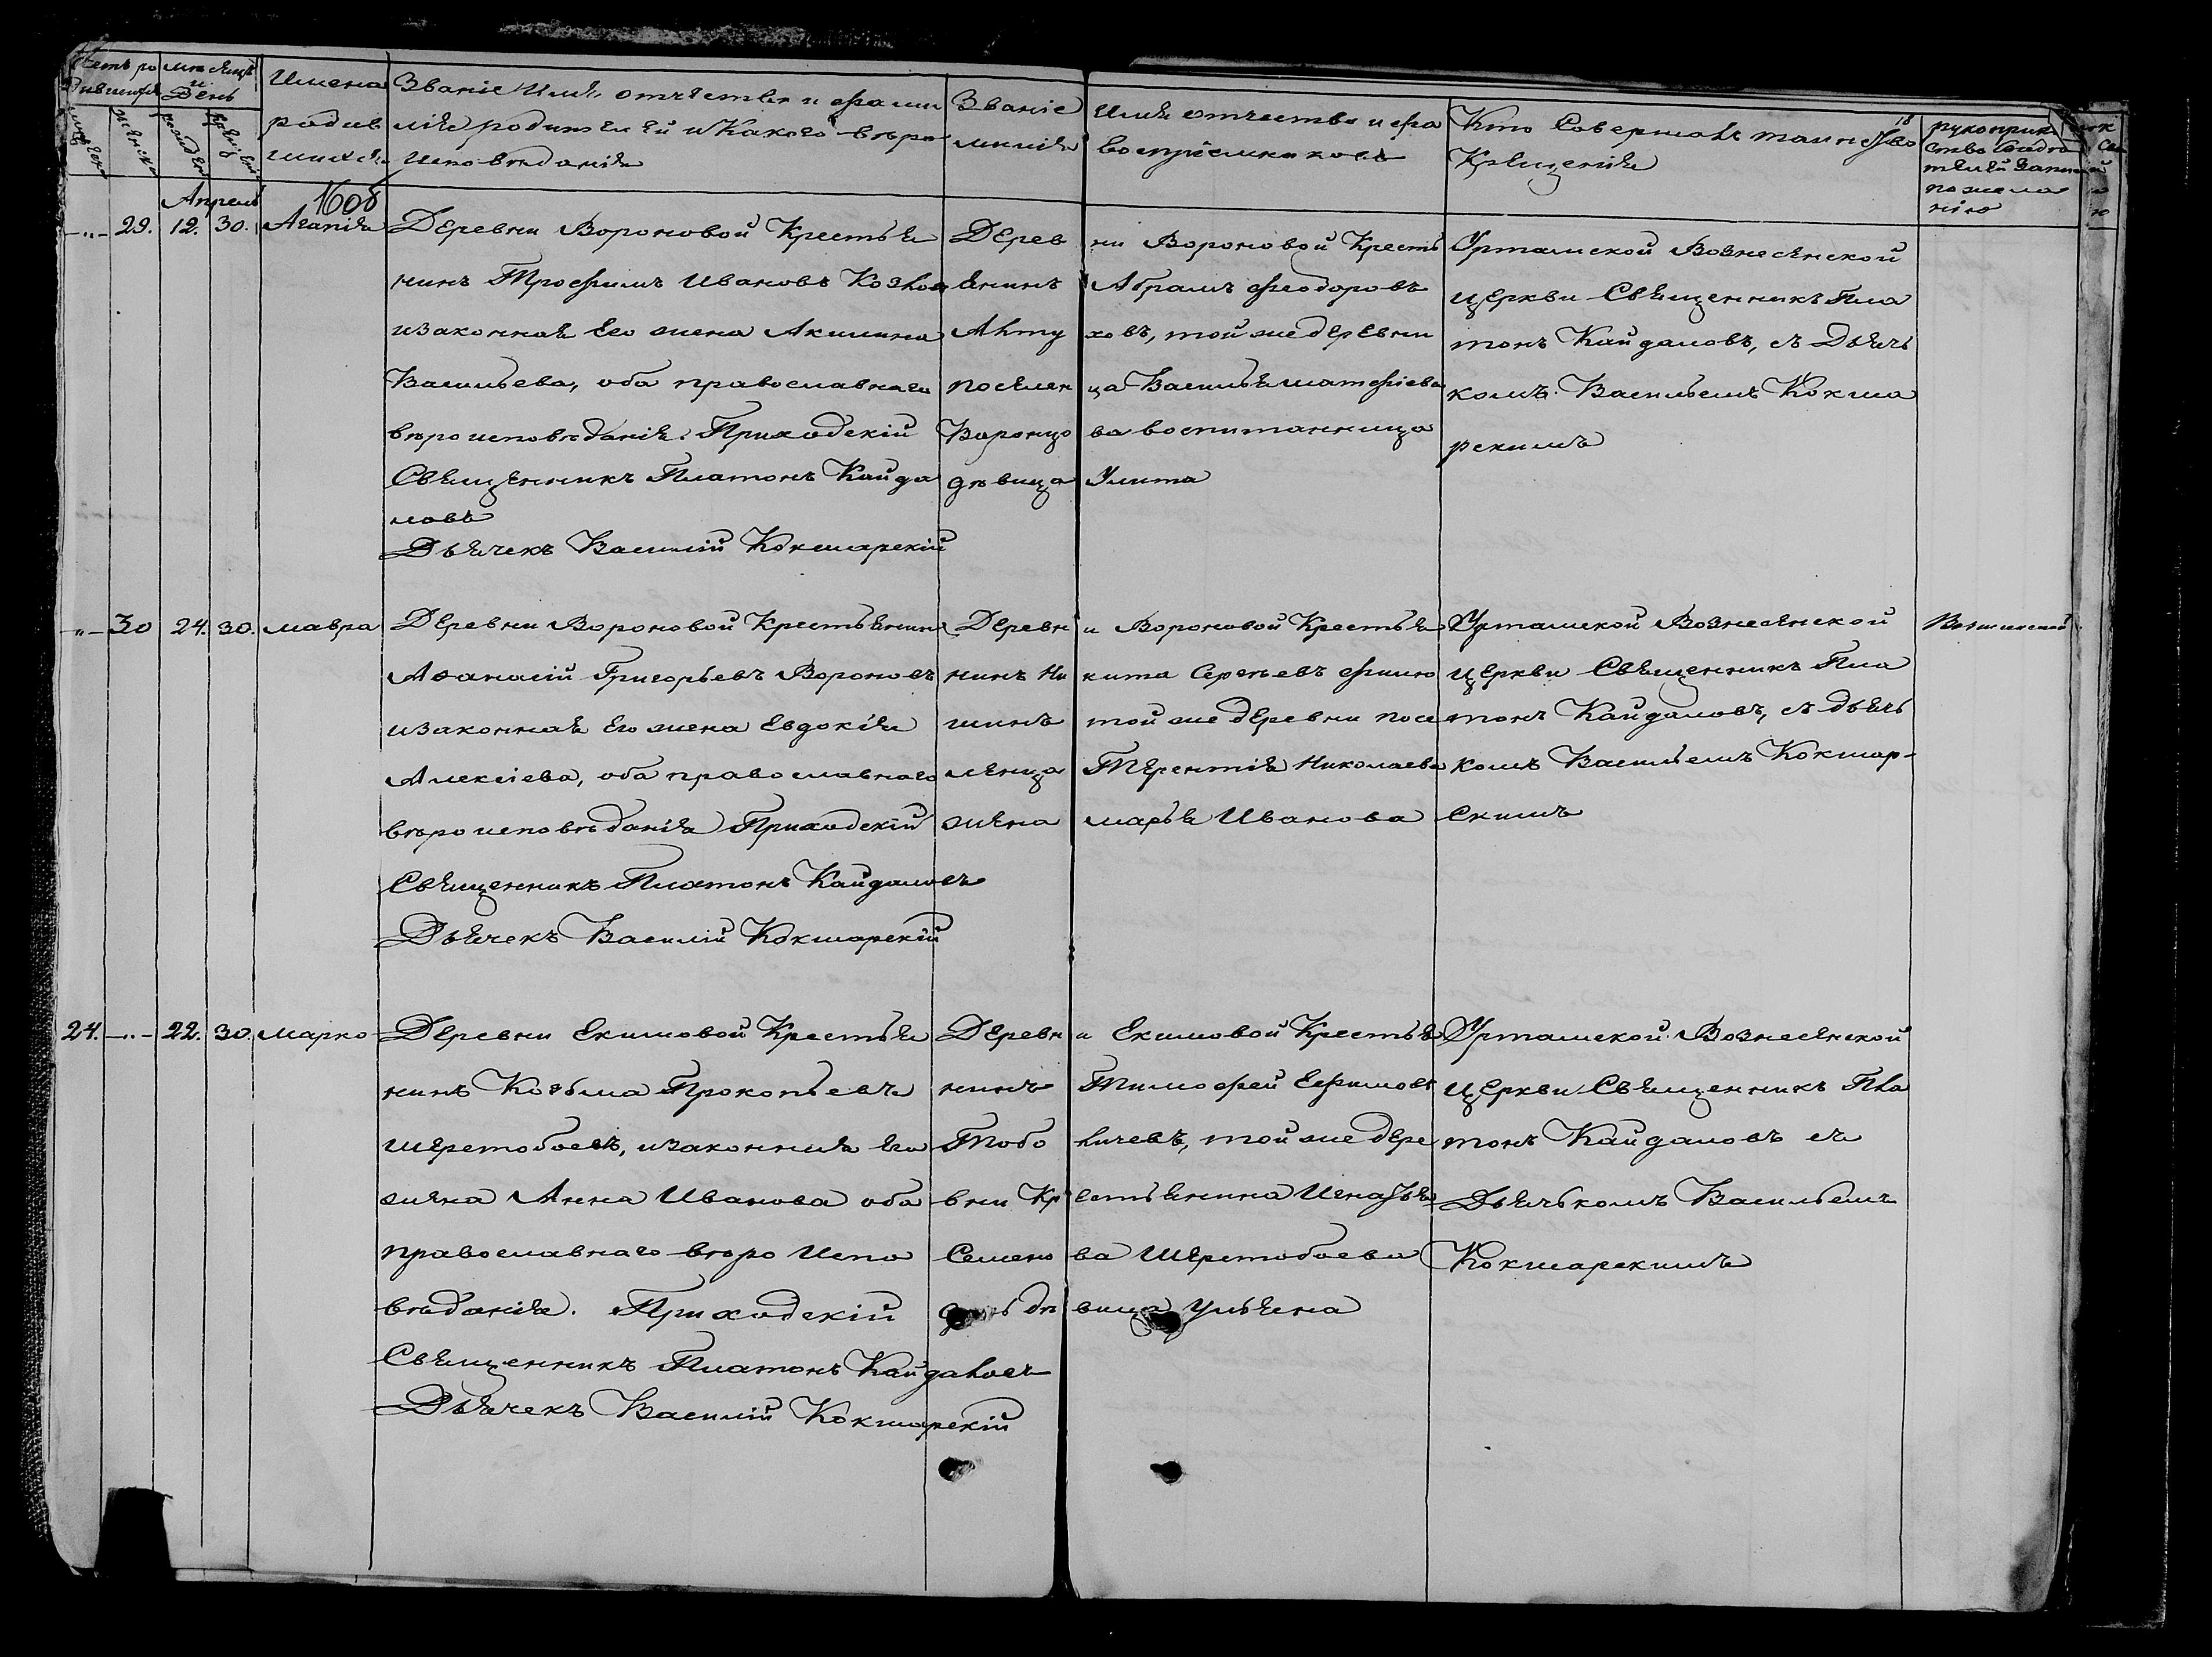 Имена
родив
шихся
Званіе Имя, отчество и фами
лія родителей и Какого вѣро
Исповѣданія
Званіе
Имя отчество и фа
милія
воспріемниковъ
Кто Совершалъ таинство
Крещенія
18
рукоприк
по жела
нію
месяцъ
и
День
Апрель
16об
29. 12. 30. Агапія
Деревни Вороновой Крестья
нинъ Трофимъ Ивановъ Козлов
изаконная Его жена Акилина
Васильева, оба православнаго
вѣроисповѣданія. Приходскій
Священникъ Платонъ Кайда
ловъ
Дьячекъ Василій Кокшарскій
Деревни Вороновой Кресть
янинъ Абрамъ Феодоровъ
Алтуховъ, той же деревни
поселенца Василья Матфіева
Воронцова воспитанница
дѣвица Улита
Урташской Вознесенской
церкви Священникъ Пла
тонъ Кайдаловъ, съ Дьячь
комъ Васильемъ Кокша
рскимъ
30 24. 30. Мавра
Деревни Вороновой Крестьянинъ
Афанасій Григорьевъ Вороновъ
изаконная Его жена Евдокія
Алексіева, оба православнаго
вѣроисповѣданія Приходскій
Священникъ Платонъ Кайдаловъ
Дьячекъ Василій Кокшарскій
Деревни Вороновой Крестья
нинъ Никита Сергѣевъ Филю
шинъ той же деревни посе
ленца Терентія Николаева
жена Марья Иванова
Урташской Вознесенской
церкви Священникъ Пла
тонъ Кайдаловъ, съ дьячь
комъ Васильемъ Кокшар-
скимъ
24. 22. 30. Марко
Деревни Екимовой Крестья
нинъ Козьма Прокопьевъ
Шерстобоевъ, изаконная Его
жена Анна Иванова оба
православнаго вѣро Испо
вѣданія. Приходскій
Священникъ Платонъ Кайдаловъ
Дьячекъ Василій Кокшарскій
Деревни Екимовой Крестья
нинъ Тимофей Ефимовъ
Тоболичевъ, той же дере
вни Крестьянина Игнатья
Семенова Шерстобоева
дочь дѣвица Ульяна
Урташской Вознесенской
церкви Священникъ Пла
тонъ Кайдаловъ съ
Дьячькомъ Васильемъ
Кокшарскимъ